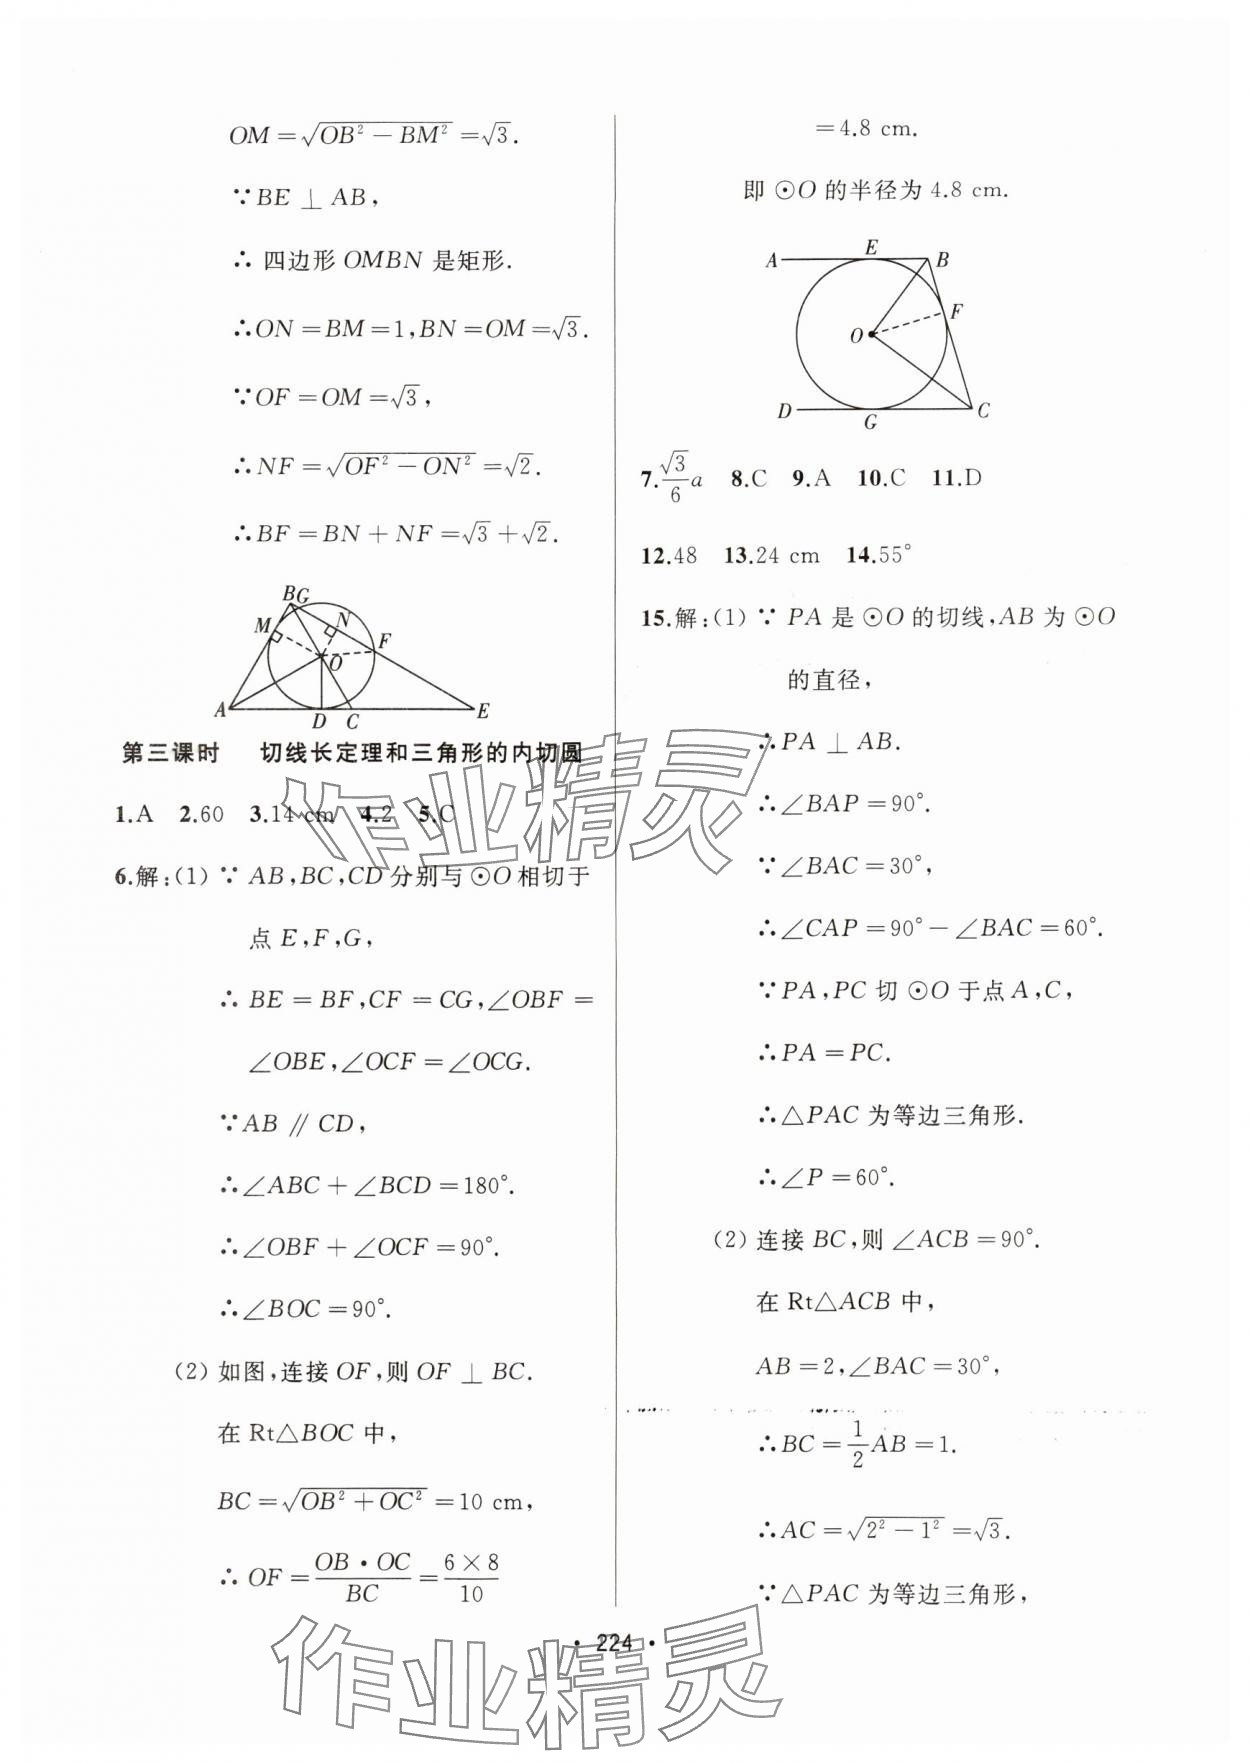 OM=√(OB²-BM²)=√3.
∵BE⊥AB,
∴ 四边形 OMBN 是矩形.
∴ON=BM=1,BN=OM=√3.
∵OF=OM=√3,
∴NF=√(OF²-ON²)=√2.
∴BF=BN+NF=√3+√2.
B G N M F O A D C E
第三课时 切线长定理和三角形的内切圆
1.A 2.60 3.14 cm 4.2 5.C
6.解:(1) ∵ AB,BC,CD分别与⊙O相切于
点 E,F,G,
∴ BE=BF,CF=CG,∠OBF=
∠OBE,∠OCF=∠OCG.
∵AB∥CD,
∴∠ABC+∠BCD=180°.
∴∠OBF+∠OCF=90°.
∴∠BOC=90°.
(2) 如图,连接 OF,则 OF⊥BC.
在 Rt△BOC 中,
BC=√(OB²+OC²)=10 cm,
∴ OF=OB·OC/BC=6×8/10
=4.8 cm.
即 ⊙O 的半径为 4.8 cm.
A E B F O D G C
7.√3/6 a 8.C 9.A 10.C 11.D
12.48 13.24 cm 14.55°
15.解:(1) ∵ PA 是 ⊙O 的切线,AB 为 ⊙O
的直径,
∴PA⊥AB.
∴∠BAP=90°.
∵∠BAC=30°,
∴∠CAP=90°-∠BAC=60°.
∵PA,PC 切 ⊙O 于点 A,C,
∴PA=PC.
∴△PAC 为等边三角形.
∴∠P=60°.
(2) 连接 BC,则 ∠ACB=90°.
在 Rt△ACB 中,
AB=2,∠BAC=30°,
∴BC=1/2 AB=1.
∴AC=√(2²-1²)=√3.
∵△PAC 为等边三角形,
· 224 ·
作业精灵
作业精灵